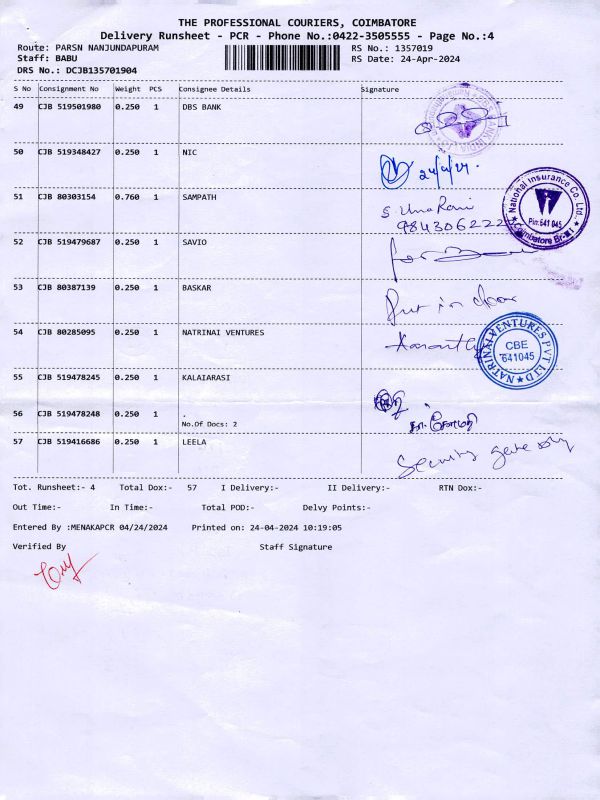 THE PROFESSIONAL COURIERS, COIMBATORE
Delivery Runsheet - PCR - Phone No.:0422-3505555 - Page No.:4
Route: PARSN NANJUNDAPURAM RS No.: 1357019
Staff: BABU RS Date: 24-Apr-2024
DRS No.: DCJB135701904
S No Consignment No Weight PCS Consignee Details Signature
49 CJB 519501980 0.250 1 DBS BANK
50 CJB 519348427 0.250 1 NIC
24/4/24.
51 CJB 80303154 0.760 1 SAMPATH
S Uma Rani
984306222
National Insurance Co. Ltd.,
Pin:641 045
Coimbatore Br-II
52 CJB 519479687 0.250 1 SAVIO
53 CJB 80387139 0.250 1 BASKAR
Put in door
54 CJB 80285095 0.250 1 NATRINAI VENTURES
NATRINAI VENTURES PVT LTD
CBE
641045
55 CJB 519478245 0.250 1 KALAIARASI
56 CJB 519478248 0.250 1 .
No.Of Docs: 2
57 CJB 519416686 0.250 1 LEELA
Security
Tot. Runsheet:- 4 Total Dox:- 57 I Delivery:- II Delivery:- RTN Dox:-
Out Time:- In Time:- Total POD:- Delvy Points:-
Entered By :MENAKAPCR 04/24/2024 Printed on: 24-04-2024 10:19:05
Verified By Staff Signature